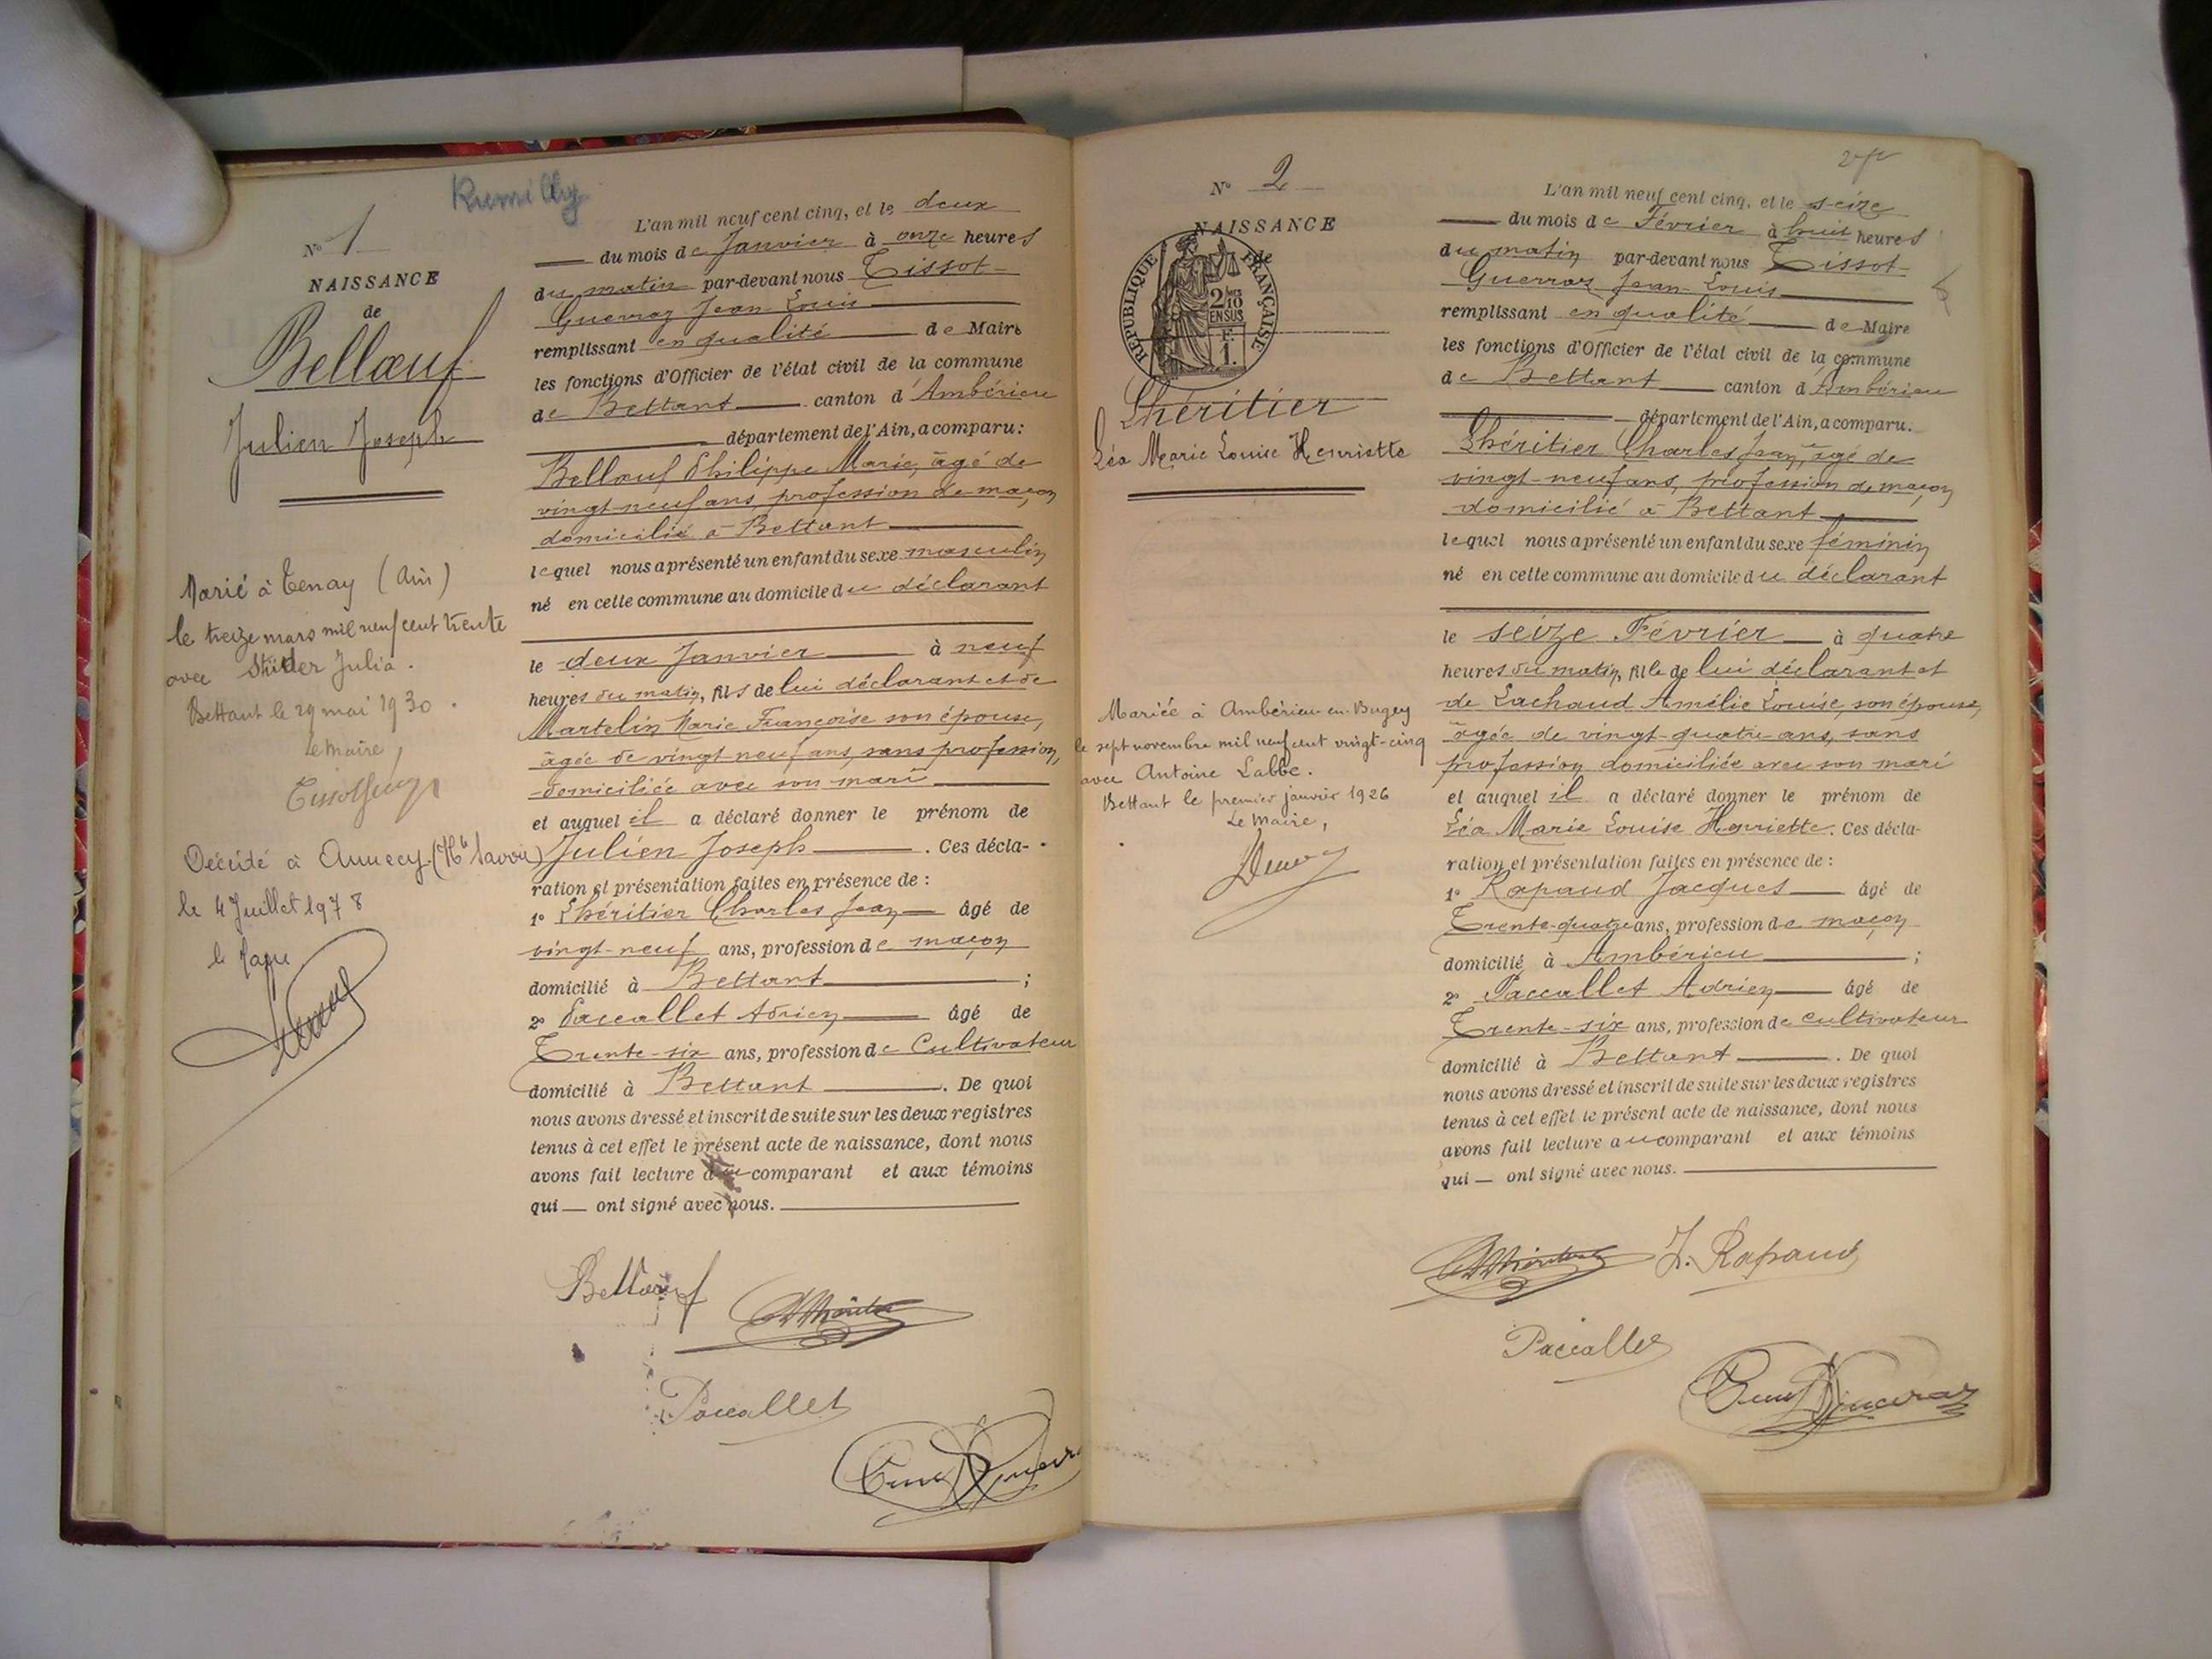 Rumilly
N° 1
NAISSANCE
de
Bellœuf
Julien Joseph
Marié à Tenay (Ain)
le treize mars mil neuf cent trente
avec Julia.
Bettant le 29 mai 1930.
Le Maire,
Décédé à Annecy (Hte Savoie)
le 4 Juillet 1978
le Maire
L'an mil neuf cent cinq, et le deux
du mois de Janvier à onze heures
du matin par-devant nous Tissot-
Guerraz Jean-Louis
remplissant en qualité de Maire
les fonctions d'Officier de l'état civil de la commune
de Bettant canton d'Ambérieu
département de l'Ain, a comparu:
Bellœuf Philippe Marie, âgé de
vingt-neuf ans, profession de maçon
domicilié à Bettant
lequel nous a présenté un enfant du sexe masculin
né en cette commune au domicile du déclarant
le deux Janvier à neuf
heures du matin, fils de lui déclarant et de
Martelin Marie Françoise son épouse,
âgée de vingt neuf ans, sans profession,
domiciliée avec son mari
et auquel il a déclaré donner le prénom de
Julien Joseph. Ces décla-
ration et présentation faites en présence de :
1° Lhéritier Charles Jean âgé de
vingt-neuf ans, profession de maçon
domicilié à Bettant ;
2° Paccallet Adrien âgé de
Trente-six ans, profession de Cultivateur
domicilié à Bettant. De quoi
nous avons dressé et inscrit de suite sur les deux registres
tenus à cet effet le présent acte de naissance, dont nous
avons fait lecture au comparant et aux témoins
qui — ont signé avec nous.
Bellœuf
Paccallet
N° 2
NAISSANCE
de
RÉPUBLIQUE FRANÇAISE
2/10
EN SUS
F.
1.
Lhéritier
Léa Marie Louise Henriette
Mariée à Ambérieu-en-Bugey
le sept novembre mil neuf cent vingt-cinq
avec Antoine Labbe.
Bettant le premier janvier 1926
Le Maire,
L'an mil neuf cent cinq, et le seize
du mois de Février à huit heures
du matin par-devant nous Tissot-
Guerraz Jean-Louis
remplissant en qualité de Maire
les fonctions d'Officier de l'état civil de la commune
de Bettant canton d'Ambérieu
département de l'Ain, a comparu.
Lhéritier Charles Jean, âgé de
vingt-neuf ans, profession de maçon
domicilié à Bettant
lequel nous a présenté un enfant du sexe féminin
né en cette commune au domicile du déclarant
le seize Février à quatre
heures du matin, fille de lui déclarant et
de Lachaud Amélie Louise, son épouse,
âgée de vingt-quatre ans, sans
profession domiciliée avec son mari
et auquel il a déclaré donner le prénom de
Léa Marie Louise Henriette. Ces décla-
ration et présentation faites en présence de :
1° Rapaud Jacques âgé de
Trente-quatre ans, profession de maçon
domicilié à Ambérieu ;
2° Paccallet Adrien âgé de
Trente-six ans, profession de cultivateur
domicilié à Bettant. De quoi
nous avons dressé et inscrit de suite sur les deux registres
tenus à cet effet le présent acte de naissance, dont nous
avons fait lecture au comparant et aux témoins
qui — ont signé avec nous.
J. Rapaud
Paccallet